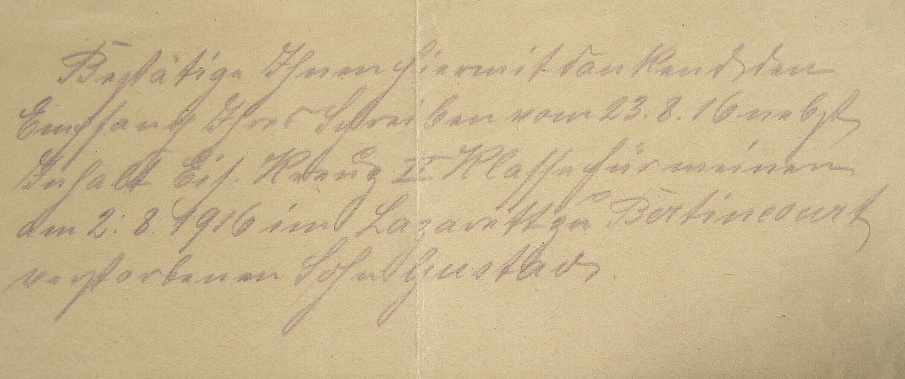 Bestätige Ihnen hiermit dankend den
Empfang Ihres Schreiben vom 23.8.16 nebst
Inhalt Eis. Kreuz II Klasse für meinen
am 2.8.1916 im Lazarett zu Bertincourt
verstorbenen Sohn Gustav.